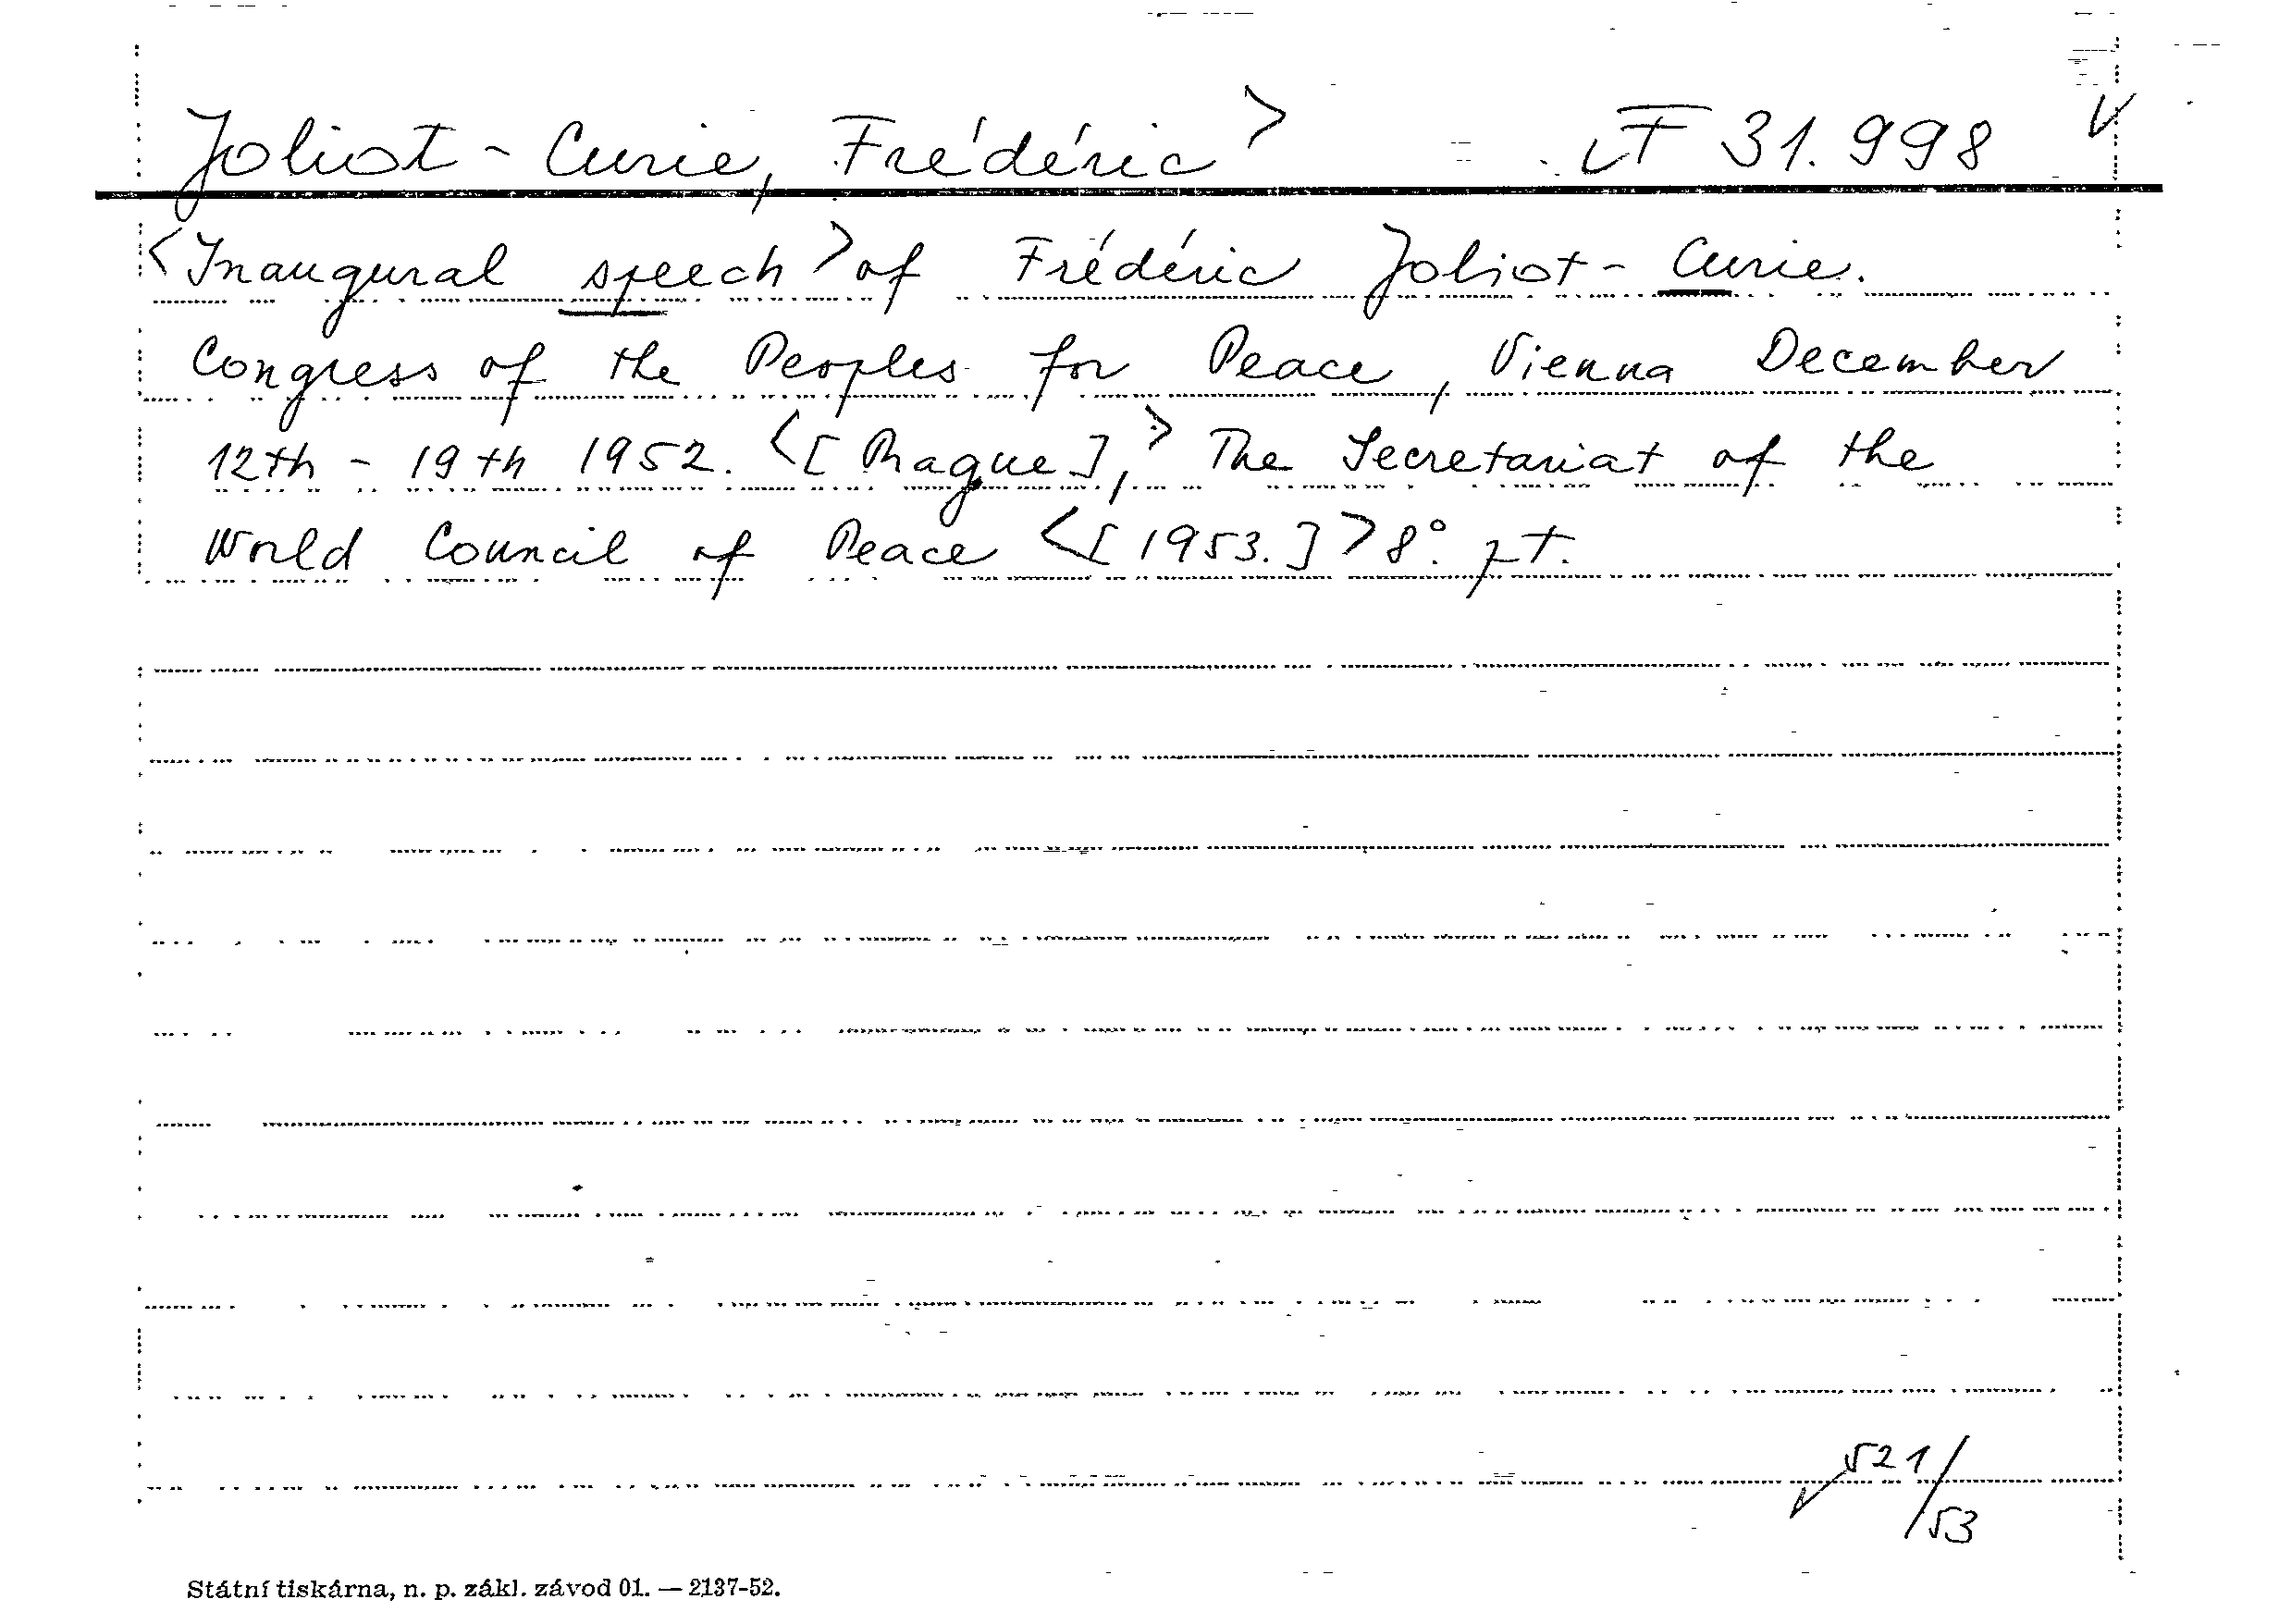 Joliot - Curie, Frédéric > F 31.998
<Inaugural speech> of Frédéric Joliot - Curie.
Congress of the Peoples for Peace, Vienna December
12th - 19th 1952. <[Prague],> The Secretariat of the
World Council of Peace <[1953.]> 8° pt.
521/53
Státní tiskárna, n. p. zákl. závod 01. — 2137-52.